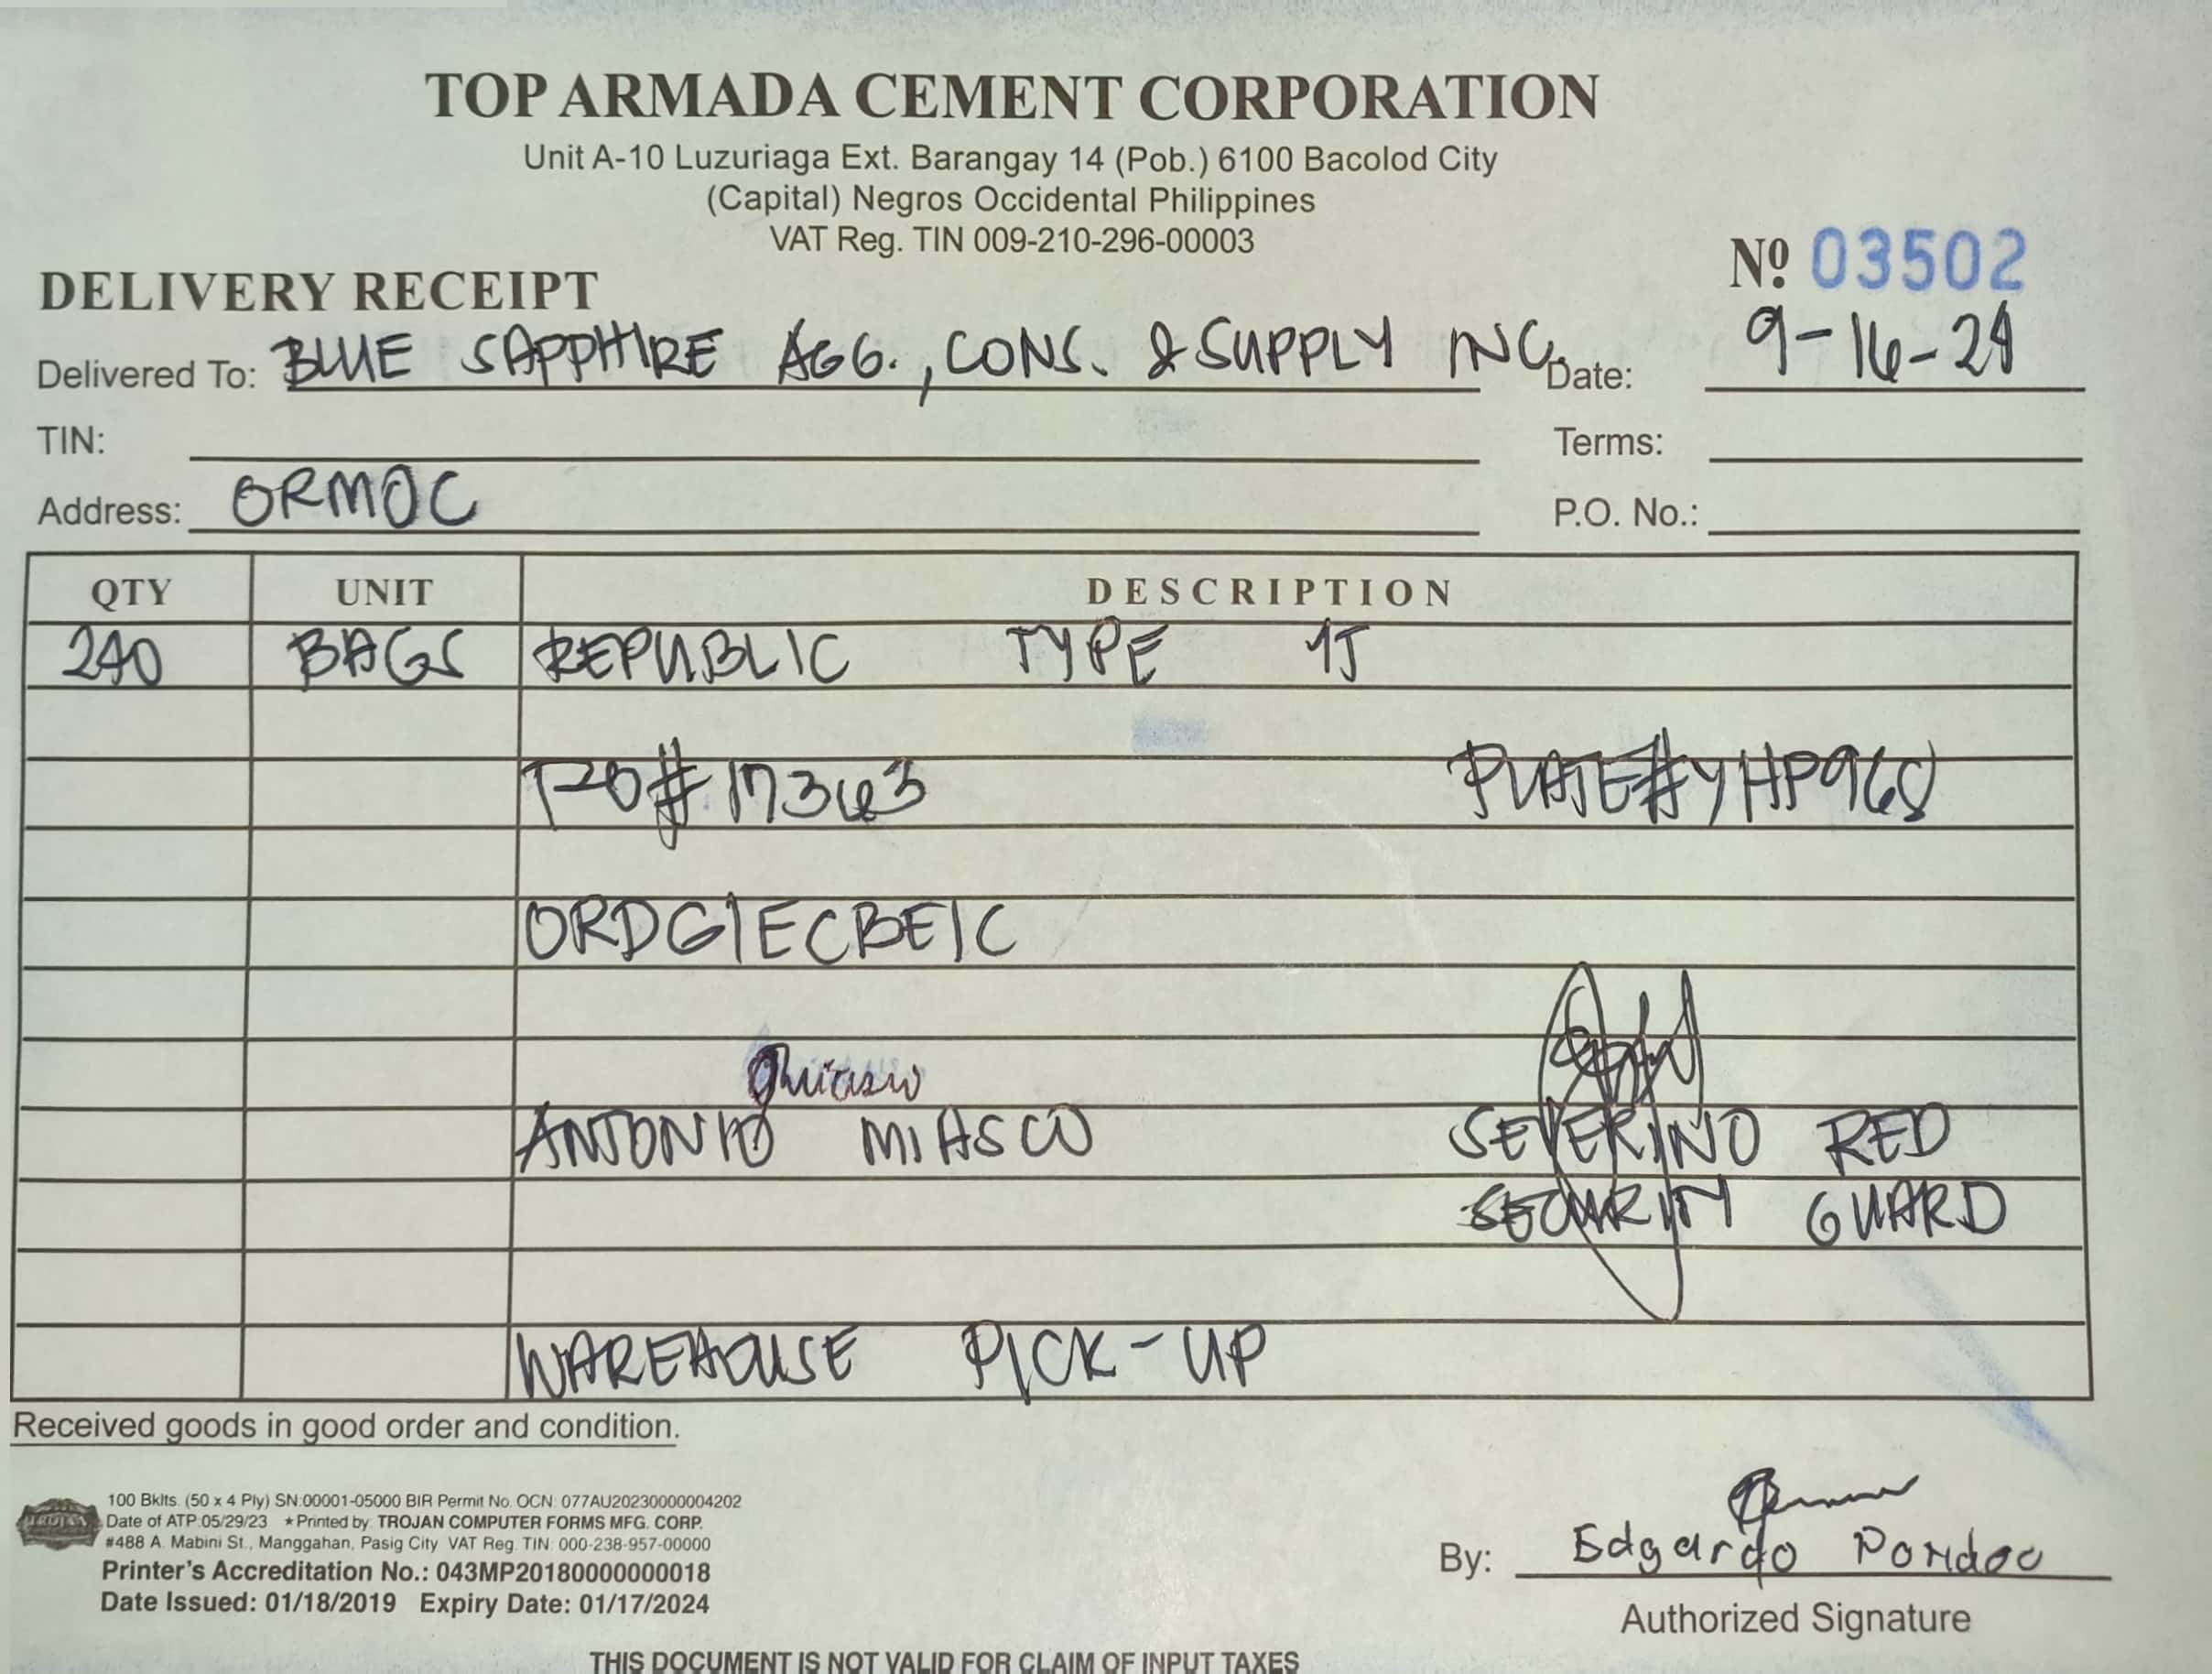 TOP ARMADA CEMENT CORPORATION
Unit A-10 Luzuriaga Ext. Barangay 14 (Pob.) 6100 Bacolod City
(Capital) Negros Occidental Philippines
VAT Reg. TIN 009-210-296-00003
DELIVERY RECEIPT Nº 03502
Delivered To: BLUE SAPPHIRE AGG., CONS. & SUPPLY INC. Date: 9-16-24
TIN: Terms:
Address: ORMOC P.O. No.:
QTY UNIT DESCRIPTION
240 BAGS REPUBLIC TYPE 1T
PO# 17363 PLATE# YHP968
ORDG1ECBE1C
ANTONIO MIASCO SEVERINO RED
SECURITY GUARD
WAREHOUSE PICK-UP
Received goods in good order and condition.
TROJAN
100 Bklts. (50 x 4 Ply) SN:00001-05000 BIR Permit No. OCN: 077AU20230000004202
Date of ATP 05/29/23 ★Printed by: TROJAN COMPUTER FORMS MFG. CORP.
#488 A. Mabini St., Manggahan, Pasig City VAT Reg. TIN: 000-238-957-00000
Printer's Accreditation No.: 043MP20180000000018
Date Issued: 01/18/2019 Expiry Date: 01/17/2024
By: Edgardo
Authorized Signature
THIS DOCUMENT IS NOT VALID FOR CLAIM OF INPUT TAXES